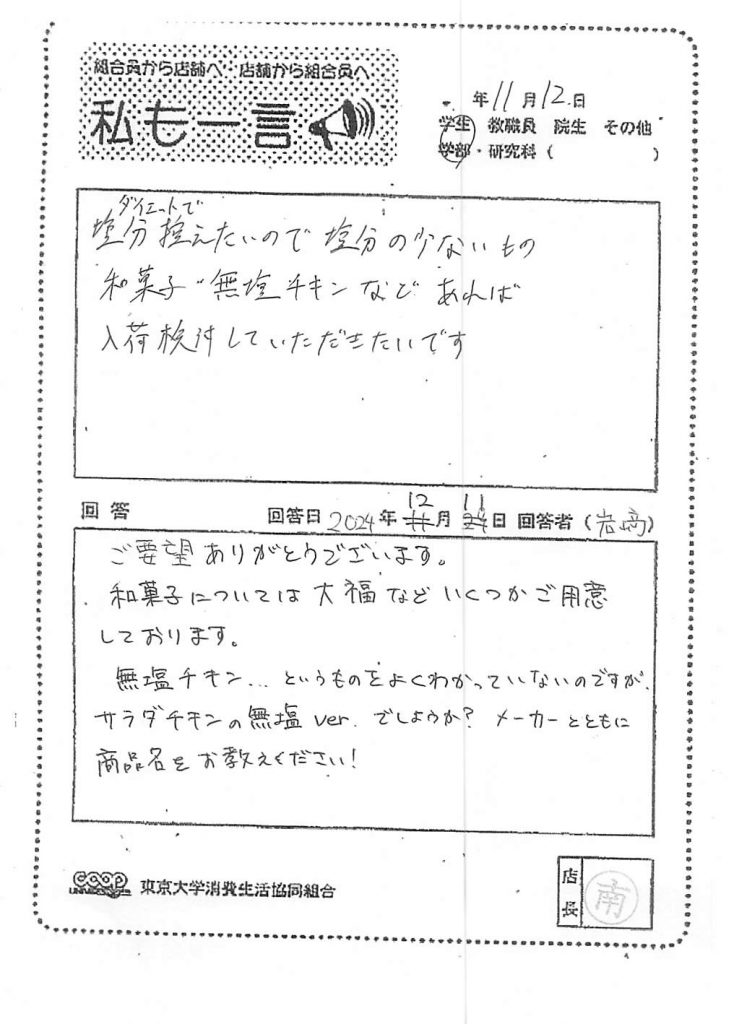 組合員から店舗へ・店舗から組合員へ
私も一言
年11月12日
学生 教職員 院生 その他
学部・研究科( )
ダイエットで
塩分控えたいので 塩分の少ないもの
和菓子・無塩チキンなど あれば
入荷検討していただきたいです
12 11
回答 回答日 2024年 月 日 回答者(岩崎)
ご要望ありがとうございます。
和菓子については大福などいくつかご用意
しております。
無塩チキン...というものをよくわかっていないのですが、
サラダチキンの無塩ver.でしょうか? メーカーとともに
商品名をお教えください!
COOP 東京大学消費生活協同組合
店長 南